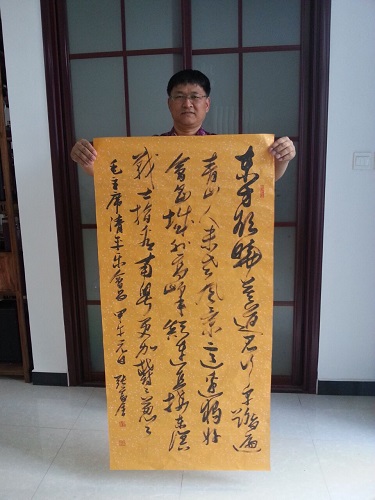 东方欲晓莫道君行早踏遍
青山人未老风景这边独好
会昌城外高峰颠连直接东溟
战士指看南粤更加郁々葱々
毛主席清平乐会昌 甲午元月 张